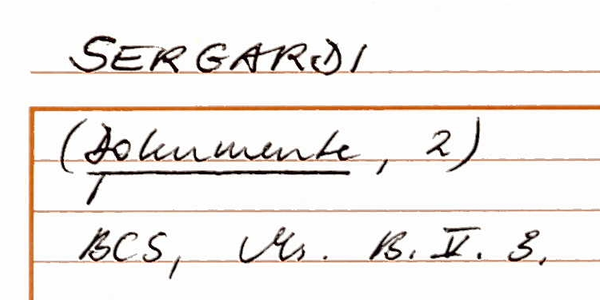 SERGARDI
(Dokumente, 2)
BCS, Ms. B. V. 3.